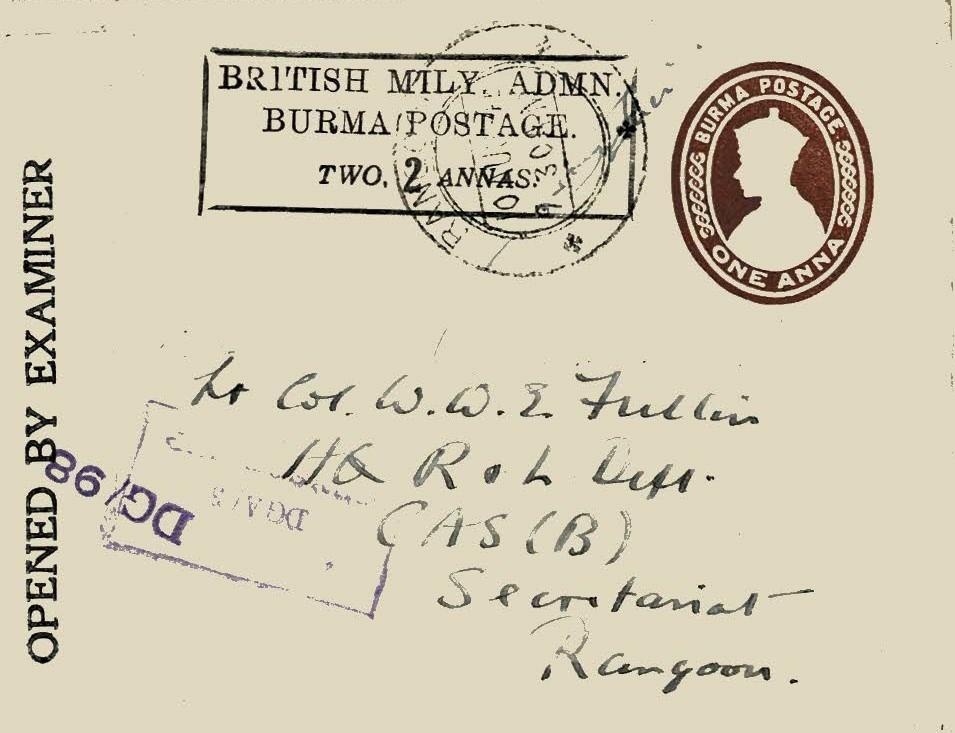 BRITISH MILY. ADMN.
BURMA POSTAGE.
TWO. 2 ANNAS.
BURMA POSTAGE
ONE ANNA
OPENED BY EXAMINER
DG/98
DGA/3
Lt Col. W. W. E.
HQ R & L Dept.
CAS (B)
Secretariat
Rangoon.